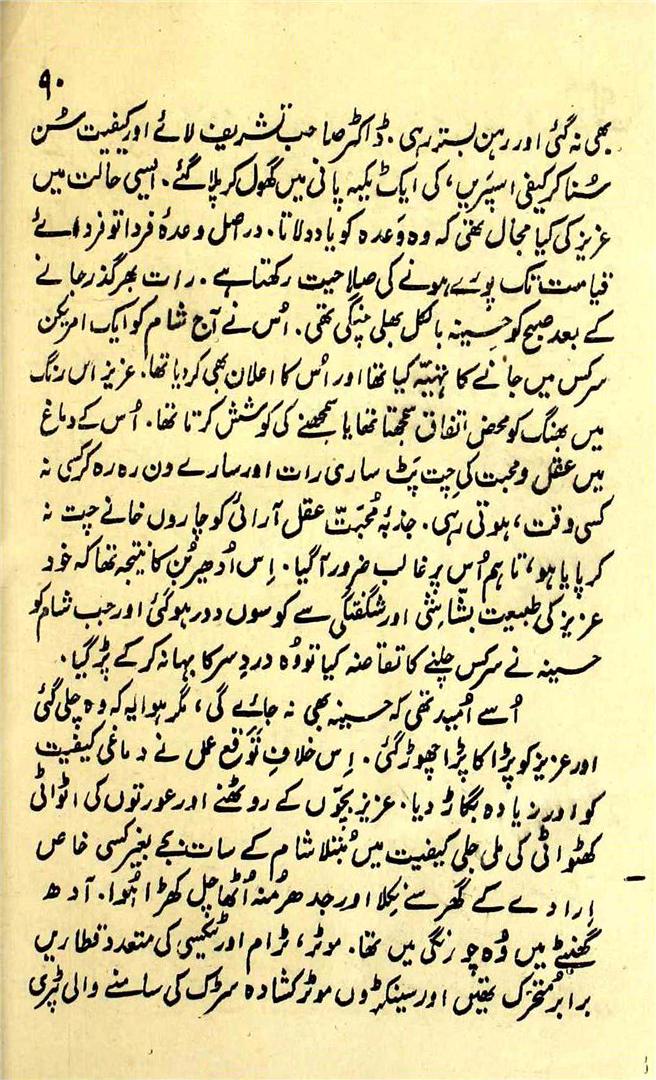 ۹۰
بھی نہ گئی اور رہن بستر رہی. ڈاکٹر صاحب تشریف لائے اور کیفیت سُن
سُنا کر کیفی اسپریں، کی ایک ٹیکیہ پانی میں گھول کر پلا گئے. ایسی حالت میں
عزیز کی کیا مجال تھی کہ وہ وَعدہ کو یاد دلاتا. در اصل وعدۂ فردا تو فردائے
قیامت تک پورے ہونے کی صلاحیت رکھتا ہے. رات بھر گذر جانے
کے بعد صبح کو حسینہ بالکل بھلی چنگی تھی. اُس نے آج شام کو ایک امریکن
سرکس میں جانے کا تہیّہ کیا تھا اور اُس کا اعلان بھی کر دیا تھا. عزیز اس رنگ
میں بھنگ کو محض اتفاق سمجھتا تھا یا سمجھنے کی کوشش کرتا تھا. اُس کے دماغ
میں عقل و محبت کی چت پَٹ ساری رات اور سارے دن رہ رہ کر کسی نہ
کسی وقت، ہوتی رہی. جذبۂ مُحبّت عقل آرائی کو چاروں خانے چت نہ
کر پایا ہو، تاہم اُس پر غالب ضرور آ گیا. اِس اُدھیڑبُن کا نتیجہ تھا کہ خود
عزیز کی طبیعت بشّاشی اور شگفتگی سے کوسوں دور ہو گئی اور جب شام کو
حسینہ نے سرکس چلنے کا تقاضہ کیا تو وُہ دردِ سر کا بہانہ کر کے پڑ گیا.
اُسے اُمید تھی کہ حسینہ بھی نہ جائے گی، مگر ہوا یہ کہ وہ چلی گئی
اور عزیز کو پڑا کا پڑا چھوڑ گئی. اِس خلافِ تَوقع عمل نے دماغی کیفیت
کو اور زیادہ بگاڑ دیا. عزیز بچّوں کے روٹھنے اور عورتوں کی اٹواٹی
کھٹواٹی کی ملی جلی کیفیت میں مُبتلا شام کے سات بجے بغیر کسی خاص
اِرادے کے گھر سے نِکلا اور جدھر مُنہ اُٹھا چل کھڑا ہُوا. آدھ
گھنٹے میں وُہ چورنگی میں تھا. موٹر، ٹرام اور ٹیکسی کی متعدد قطاریں
برابر مُتحرّک تھیں اور سینکڑوں موٹر کشادہ سڑک کی سامنے والی پٹری